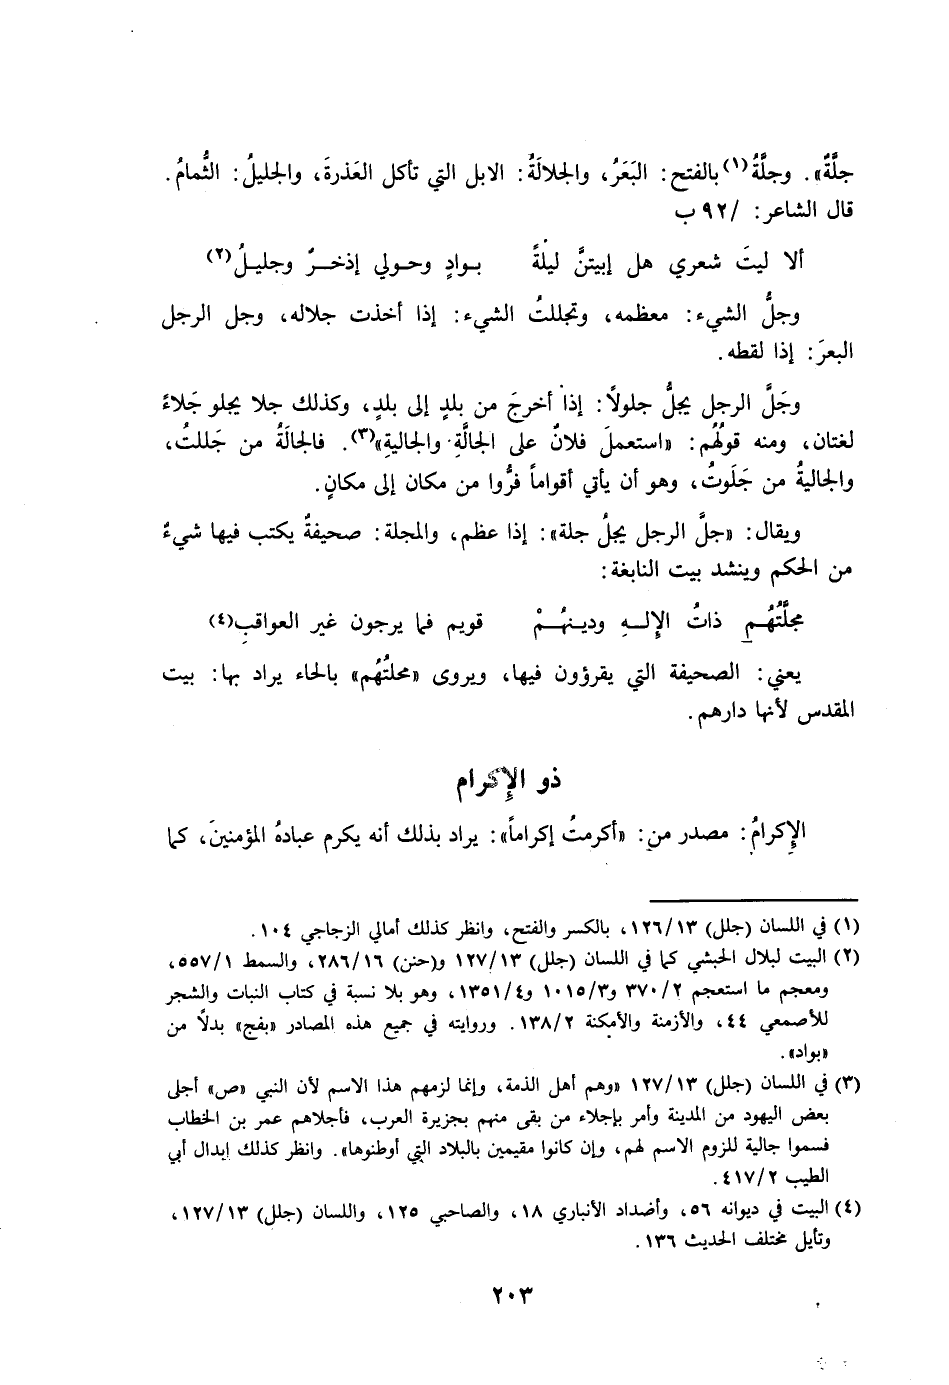 جلَّةٌ». وجلَّةُ(١) بالفتح: البَعَرُ، والجلالَةُ: الابل التي تأكل العَذرةَ، والجليلُ: الثُّمامُ.
قال الشاعر: /٩٢ ب
ألا ليتَ شعري هل إبيتنَّ ليلةً بـوادٍ وحـولي إذخـرٌ وجليـلُ(٢)
وجلُّ الشيء: معظمه، وتجللتُ الشيء: إذا أخذت جلاله، وجل الرجل
البعرَ: إذا لقطه.
وجَلَّ الرجل يجلُّ جلولًا: إذا أخرجَ من بلدٍ إلى بلدٍ، وكذلك جلا يجلو جَلاءً
لغتان، ومنه قولُهُم: «استعملَ فلانٌ على الجالَّةِ والجاليةِ»(٣). فالجالَةُ من جَللتُ،
والجاليةُ من جَلَوتُ، وهو أن يأتي أقواماً فرُّوا من مكان إلى مكانٍ.
ويقال: «جلَّ الرجل يجلُ جلة»: إذا عظم، والمجلة: صحيفةٌ يكتب فيها شيءٌ
من الحكم وينشد بيت النابغة:
مجلَّتُهُـم ذاتُ الإِلـهِ ودينهُـمْ قويم فما يرجون غير العواقبِ(٤)
يعني: الصحيفة التي يقرؤون فيها، ويروى «محلتُهُم» بالحاء يراد بها: بيت
المقدس لأنها دارهم.
ذو الإِكرام
الإِكرامُ: مصدر من: «أكرمتُ إكراماً»: يراد بذلك أنه يكرم عبادهُ المؤمنينَ، كما
(١) في اللسان (جلل) ١٢٦/١٣، بالكسر والفتح، وانظر كذلك أمالي الزجاجي ١٠٤.
(٢) البيت لبلال الحبشي كما في اللسان (جلل) ١٢٧/١٣ و(حنن) ٢٨٦/١٦، والسمط ٥٥٧/١،
ومعجم ما استعجم ٣٧٠/٢ و١٠١٥/٣ و١٣٥١/٤، وهو بلا نسبة في كتاب النبات والشجر
للأصمعي ٤٤، والأزمنة والأمكنة ١٣٨/٢. وروايته في جميع هذه المصادر «بفج» بدلًا من
«بواد».
(٣) في اللسان (جلل) ١٢٧/١٣ «وهم أهل الذمة، وإنما لزمهم هذا الاسم لأن النبي «ص» أجلى
بعض اليهود من المدينة وأمر بإجلاء من بقى منهم بجزيرة العرب، فأجلاهم عمر بن الخطاب
فسموا جالية للزوم الاسم لهم، وإن كانوا مقيمين بالبلاد التي أوطنوها». وانظر كذلك إبدال أبي
الطيب ٤١٧/٢.
(٤) البيت في ديوانه ٥٦، وأضداد الأنباري ١٨، والصاحبي ١٢٥، واللسان (جلل) ١٢٧/١٣،
وتأيل مختلف الحديث ١٣٦.
٢٠٣